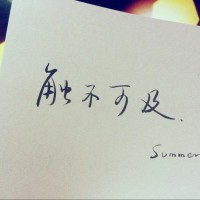 触不可及.
Summer